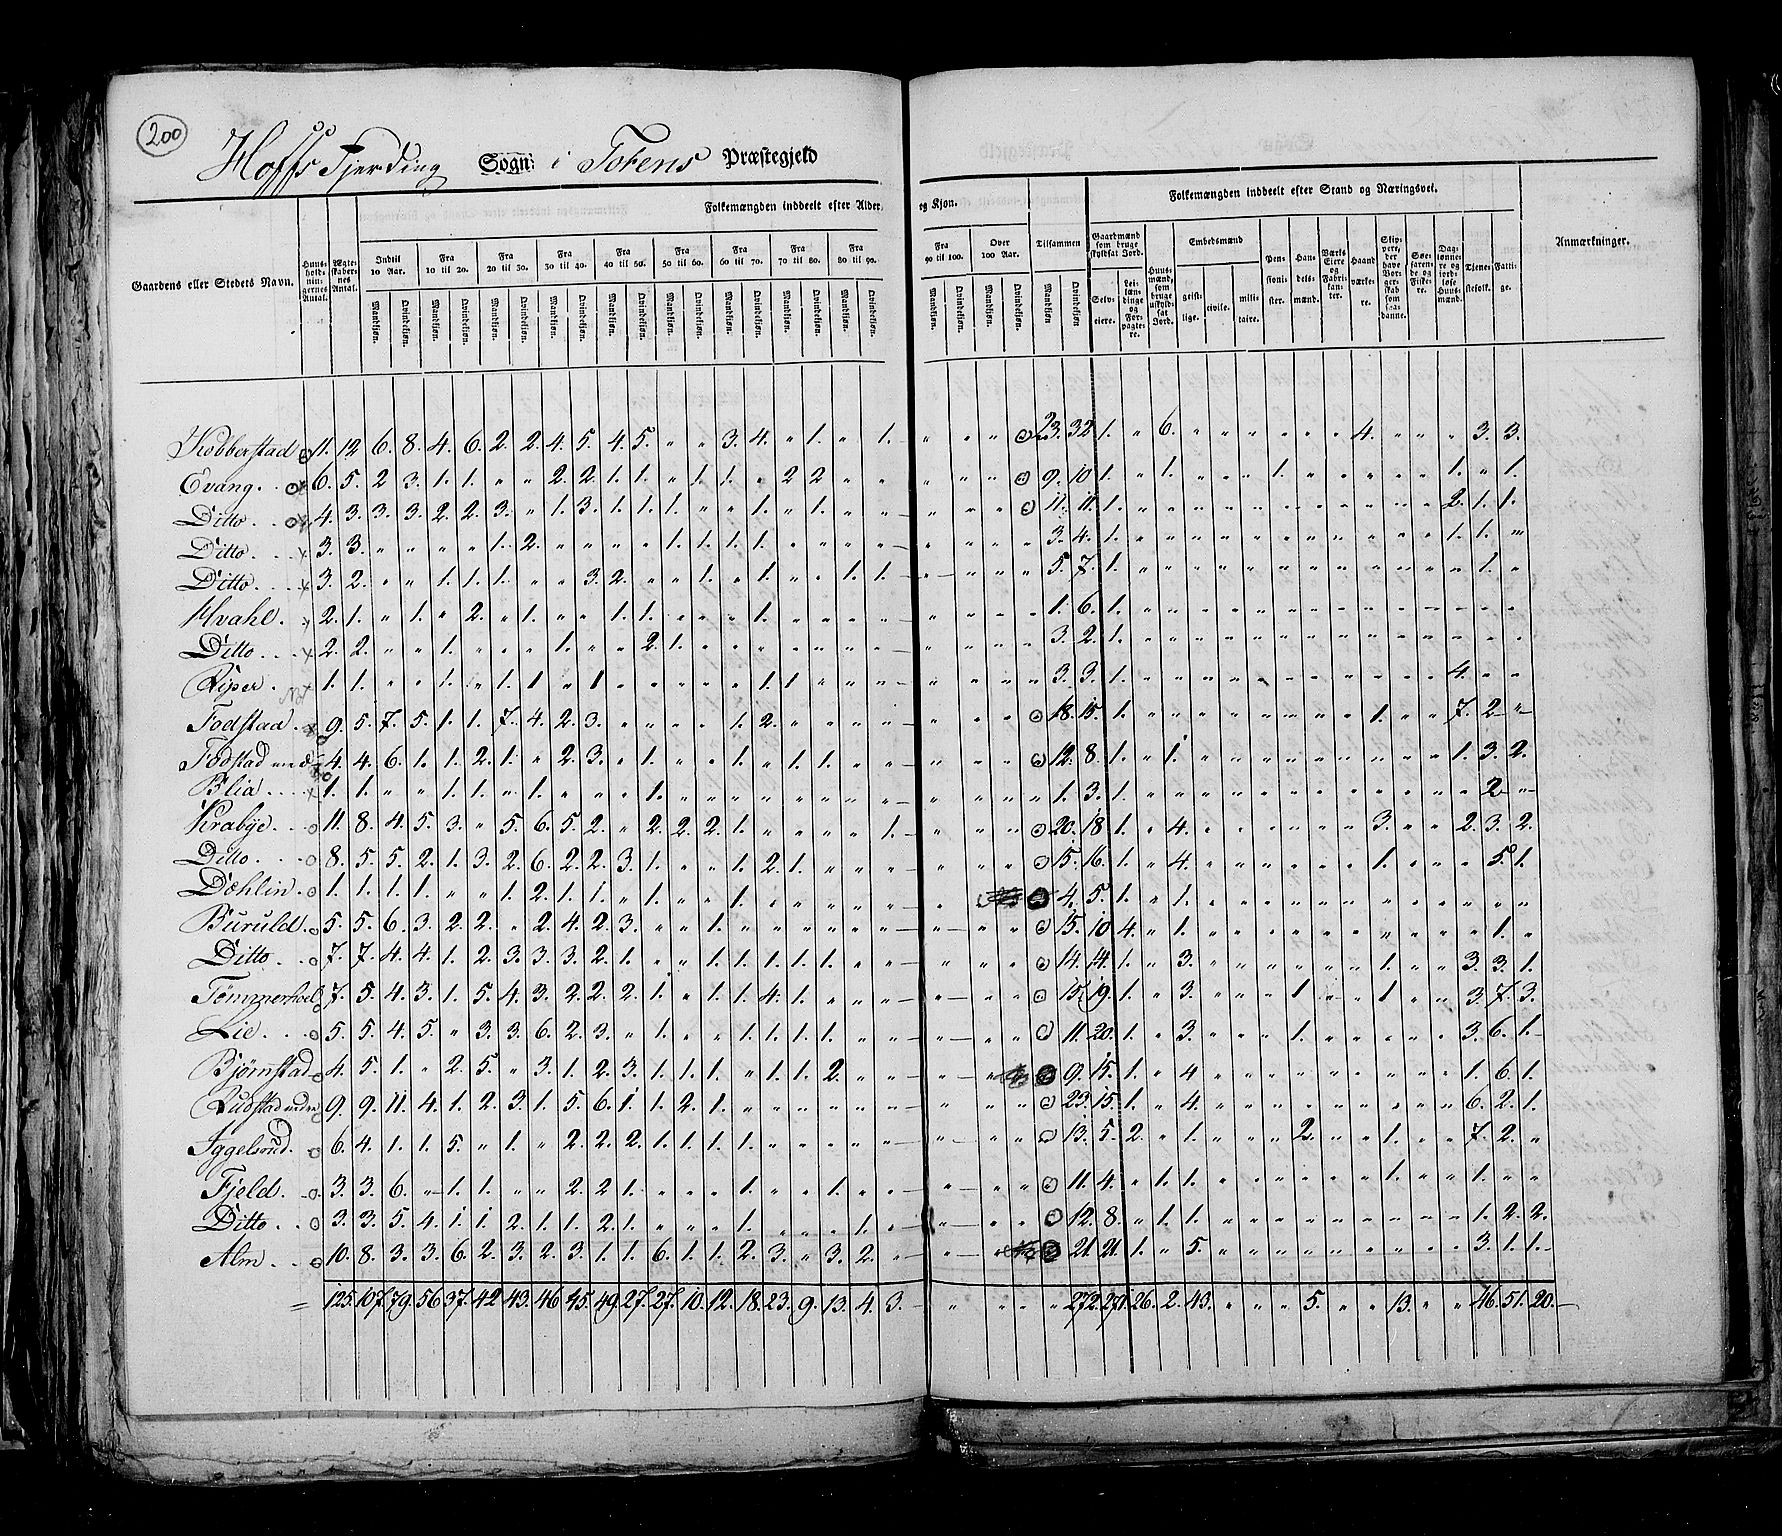 200
Hoffs Fjerding Sogn i Totens Præstegjeld
Folkemængden inddeelt efter Alder og Kjøn. Folkemængden inddeelt efter Stand og Næringsvei.
Gaardens eller Stedets Navn. Huusholdningernes Antal. Ægteskabernes Antal. Indtil 10 Aar. Fra 10 til 20. Fra 20 til 30. Fra 30 til 40. Fra 40 til 50. Fra 50 til 60. Fra 60 til 70. Fra 70 til 80. Fra 80 til 90. Fra 90 til 100. Over 100 Aar. Tilsammen Gaardmænd som bruge skyldsat Jord. Huusmænd, som bruge uskyldsat Jord. Embedsmænd Pensionister. Handelsmænd. Værks Eiere og Fabrikanter. Haandværkere. Skippere, der have Borgerskab som saadanne. Søefarende og Fiskere. Daglønnere og jordløse Huusmænd. Tjenestefolk. Fattige. Anmærkninger.
Mandkjøn. Qvindekjøn. Mandkjøn. Qvindekjøn. Mandkjøn. Qvindekjøn. Mandkjøn. Qvindekjøn. Mandkjøn. Qvindekjøn. Mandkjøn. Qvindekjøn. Mandkjøn. Qvindekjøn. Mandkjøn. Qvindekjøn. Mandkjøn. Qvindekjøn. Mandkjøn. Qvindekjøn. Mandkjøn. Qvindekjøn. Mandkjøn Qvindekjøn Selveiere. Leilændinge og Forpagtere. geistlige. civile. militaire.
Kobberstad 11. 12 6. 8. 4. 6. 2. 2. 4. 5. 4. 5. " " 3. 4. " 1. " 1. " " " 23. 32 1. " 6. " " " " " " 4. " " " 3. 3.
Evang. 6. 5. 2 3. 1. 1. " " 2. 2. 1. 1. " 1. 1. " 2 2. " " " " " 9. 10 1. " 1. " " " 1. " " " " " 1. " 1.
Ditto 4. 3. 3. 3. 2. 2. 3. " 1. 3. 1. 1. 1. " " 1. " 1. " " " " " 11. 11. 1. " " " " " " " " " " " 2. 1. 1.
Ditto. 3. 3. " " " " 1. 2. " " " " 1. 1. 1. 1. " " " " " " " 3. 4. 1. " " " " " " " " " " " 1. 1. "
Ditto 3. 2. " " 1. 1. 1. " " 3. 2. " " 1. " 1. " " 1. 1. " " " 5. 7. 1. " " " " " " " " " " " " 1. "
Hvahl. 2. 1. " 1. " 2. " 1. " " 1. 1. " " " 1. " " " " " " " 1. 6. 1. " " " " " " " " " " " " " "
Ditto 2. 2. " " 1. " " " 1. " " 2. 1. " " " " " " " " " " 3. 2. 1. " " " " " " " " " " " " " "
Riper 1. 1. " " 1. " 1. 1 " 1 " " " " " 1. 1. " " " " " " 3. 3. 1. " " " " " " " " " " " 4. " "
Fodstad 9. 5. 7. 5. 1. 1. 7. 4. 2. 3. " " " " 1. 2. " " " " " " " 18. 15. 1. " " " " " " " " 1. " " 7. 2 "
Fodstad 4. 4. 6. 1. 1. 2. 1. " 2. 3. " 1. " " 1. " 1. 1. " " " " " 12. 8. 1. " 1. " " " " " " " " " 1. 3. 2.
Blia 1. 1. " " 1. 1. " 1. " " " 1. " " " " " " " " " " " 1. 3. 1. " " " " " " " " " " " " 2 "
Krabye 11. 8. 4. 5. 3. " 5. 6. 5. 2. " 2. 2. 2. 1. " " " " 1. " " " 20. 18 1. " 4. " " " " " " 3. " " 2. 3. 2.
Ditto. 8. 5. 5. 2. 1. 3. 2. 6. 2. 2. 3. 1. " " 1. 2. 1. " " " " " " 15. 16. 1. " 4. " " " " " " 1. " " " 5. 1.
Dæhlin. 1. 1. 1. 1. " " 1. 2. 1. 1. " 1. " " 1. " " " " " " 4. 5. 1. " 1. " " " " " " " " " " " "
Buruld. 5. 5. 6. 3. 2. 2. " 2. 4. 2. 3. " " 1. " " " " " " " " " 15. 10 4. " 1. " " " " " " " " " " 1. "
Ditto 7. 7. 4. 4. 1. 2. 3. 3. 3. 2. 1. " " 1. 1. 1. 1. 1. " " " " " 14. 14. 1. " 3. " " " " " " 1. " " 3. 3. 1.
Tømmerhoel 7. 5. 4. 3. 1. 5. 4. 3. 2. 2. 2. 1. " 1. 1. 4. 1. " " " " " " 15. 19. 1. " 3. " " " 1. " 1. " " 3. 7. 3.
Lie 5. 5. 4. 5. " 3. 3. 6. 2. 3. " 1. " " 1. 1. 1. 1. " " " " " 11. 20. 1. " 3. " " " 1. " " " " 3. 6. 1.
Bjørnstad 4. 5. 1. " 2. 5. " 3. 1. 2. 3. 1. 1. 1. " 1. 1. 2. " " " " 9. 15. 1. " 4 " " " " " " " " " 1. 6. 1.
Rudstad 9. 9. 11. 4. 1. 2. 3. 1. 5. 6. 1. 1. 2. 1. " " " " " " " " " 23. 15. 1. " 4. " " " " " " " " " 6. 2. 1.
Iggelsrud. 6. 4. 1. 1. 5. " 1. " 2. 2. 2. 1. 1. 1. 1. " " " " " " " " 13. 5. 2. " 1. " " " 2. " " 1. " " 7. 2. "
Fjeld. 3. 3. 6. " 1. 1. " " 2. 2 1. " " " 1. " " 1. " " " " " 11. 4. " 1. 1. " " " " " " 1. " " 1. " "
Ditto 3. 3. 5. 4. 1. 1. 2. 1. 1. 2. 1. " " " 1. " " " 1. " " " " 12. 8. " 1. 1. " " " " " " " " " 1. 2. 2.
Alm 10. 8. 3. 3. 6. 2. 3. 2. 3. 1. 1. 6. 1. 1. 2. 3. " 3. 2. " " " 21. 21. 1. " 5. " " " " " " " " " 3. 1. 1.
125. 107. 79. 56 37. 42 43. 46 45. 49. 27. 27. 10. 12. 18. 23. 9. 13. 4. 3. " " " " 272. 271. 26. 2. 43. " " " 5. " " 13. " " 46. 51. 20.